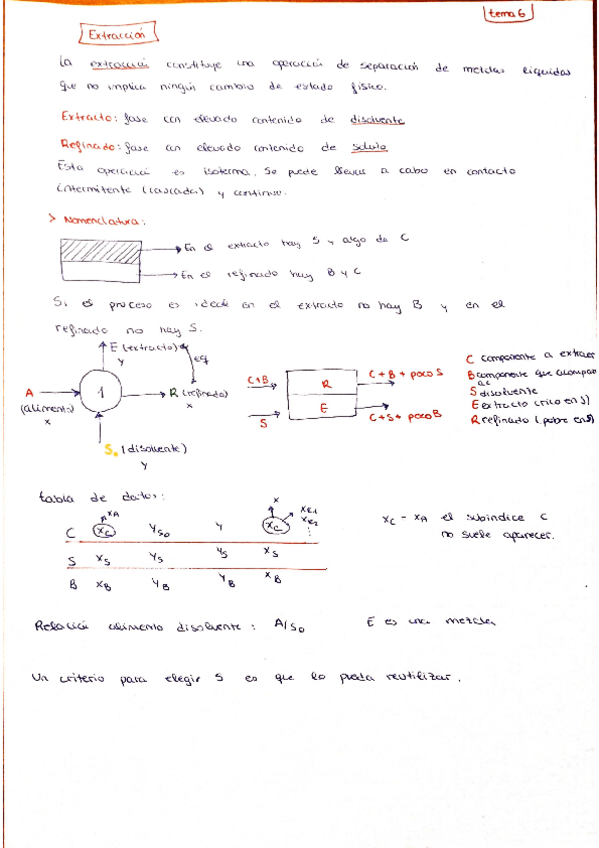 tema 6
Extracción
La extracción constituye una operación de separación de mezclas líquidas
que no implica ningún cambio de estado físico.
Extracto: fase con elevado contenido de disolvente
Refinado: fase con elevado contenido de soluto
Esta operación es isoterma. Se puede llevar a cabo en contacto
intermitente (cascada) y continuo.
> Nomenclatura:
En el extracto hay S y algo de C
En el refinado hay B y C
Si el proceso es ideal en el extracto no hay B y en el
refinado no hay S.
E (extracto)
y
eq
A
(alimento)
x
1
R (refinado)
x
S₀ (disolvente)
y
C+B
S
R
E
C + B + poco S
C+S+ poco B
C componente a extraer
B componente que acompaña
a C
S disolvente
E extracto (rico en S)
R refinado (pobre en S)
tabla de datos:
xA x xR1
C xC yS0 y xC xR2
S xS yS yS xS
B xB yB yB xB
xC - xA el subíndice C
no suele aparecer.
Relación alimento disolvente: A/S₀ E es una mezcla
Un criterio para elegir S es que lo pueda reutilizar.